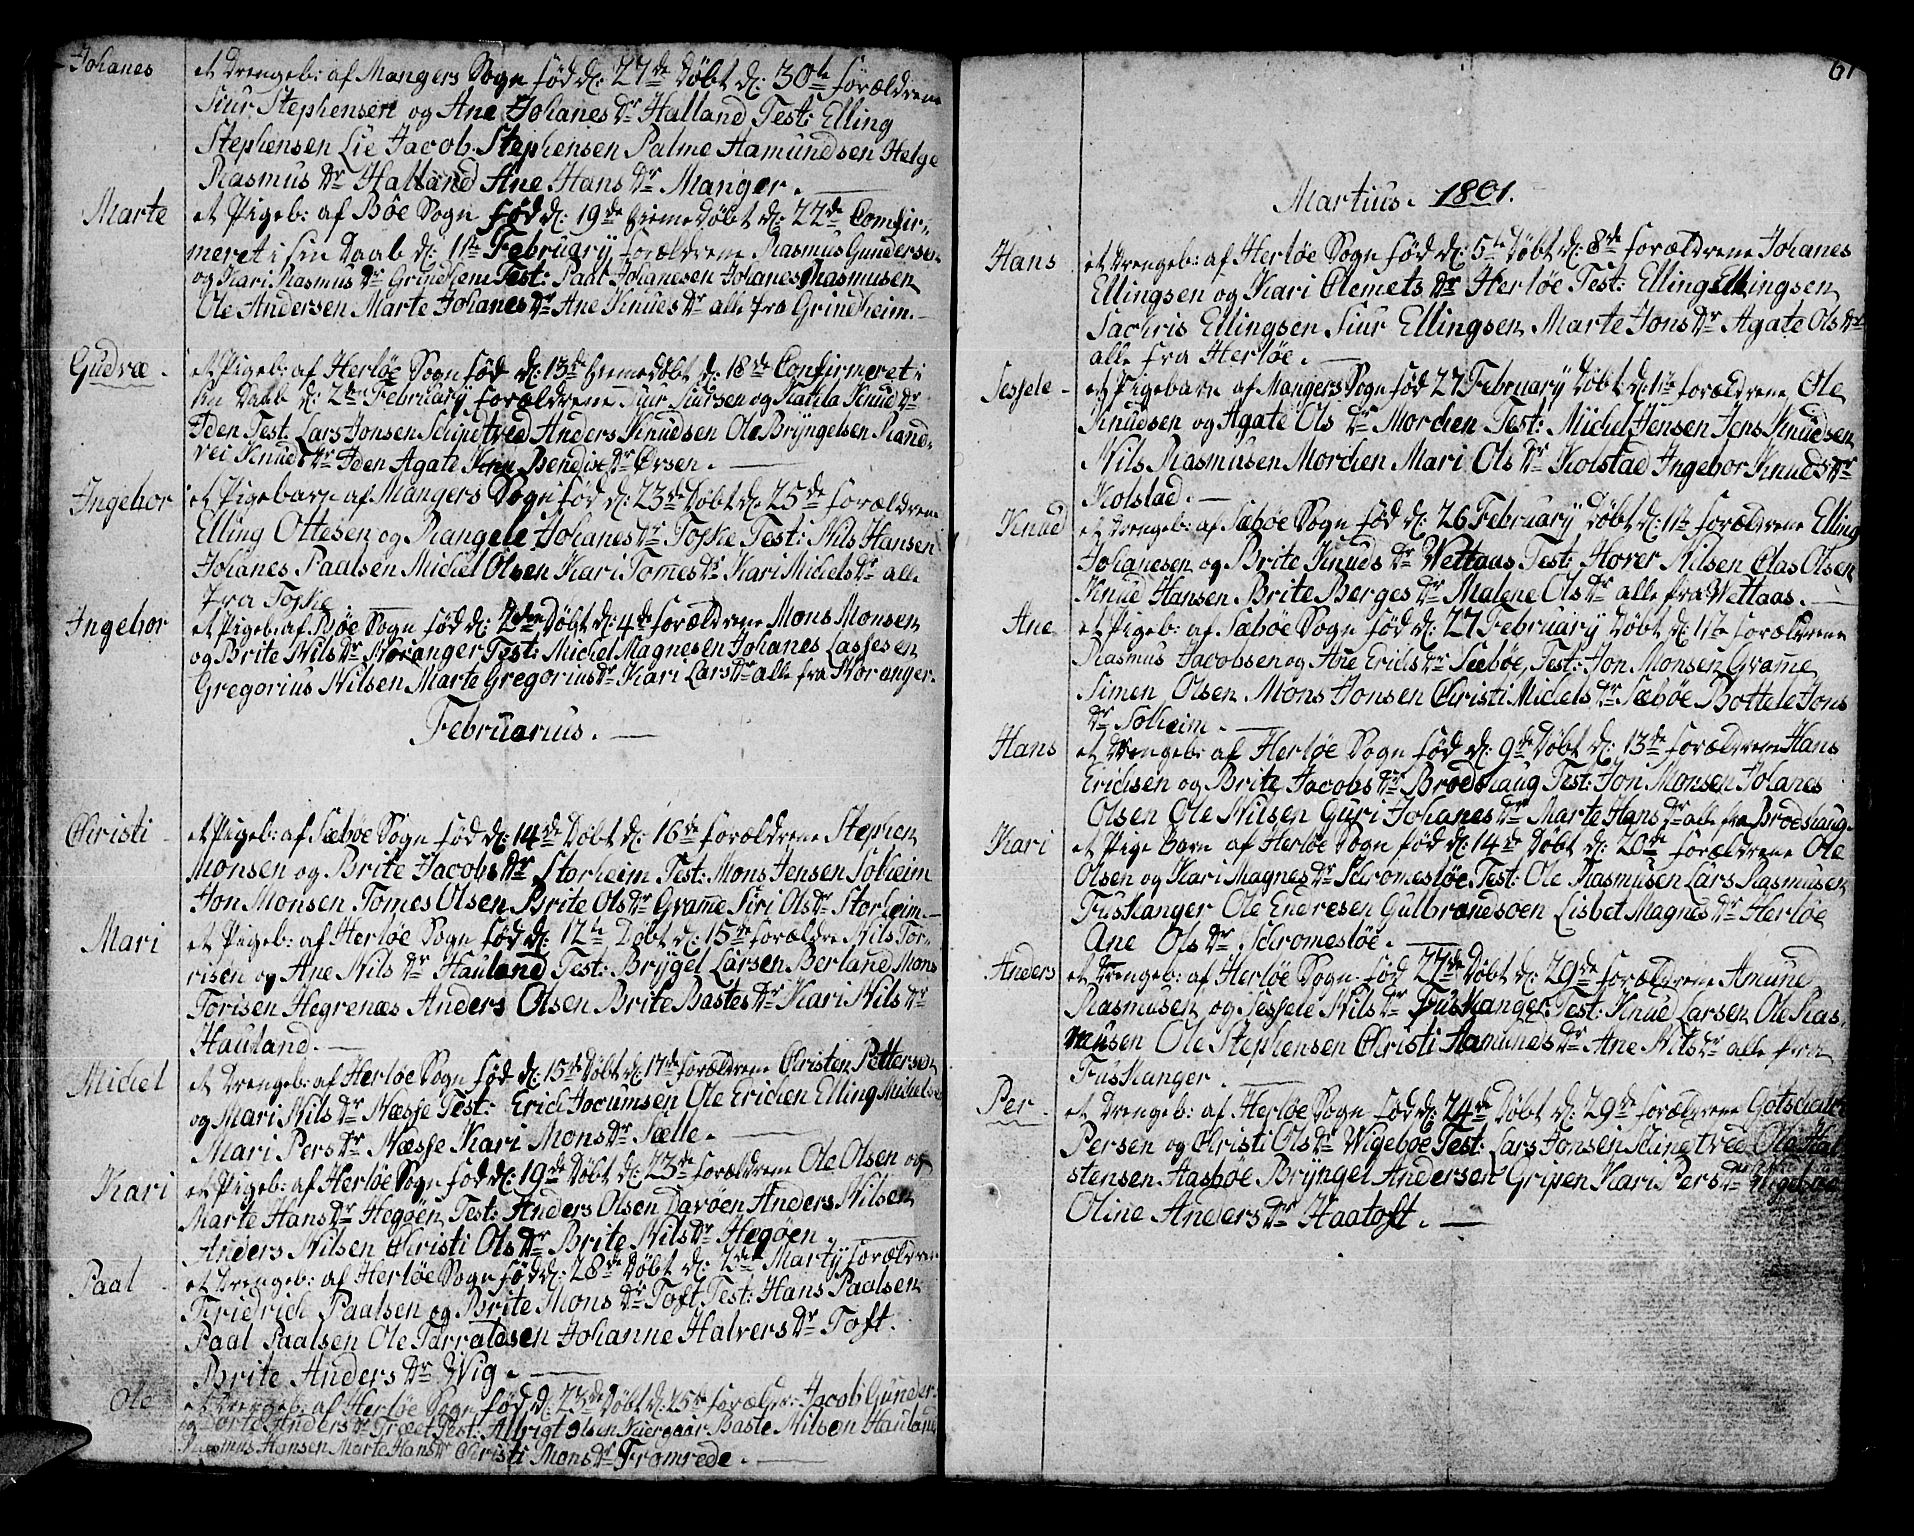 Johanes et Drengeb: af Mangers Sogn fød d: 27de Døbt d: 30te forældrene
Siur Stephensen og Ane Johanes Dr Halland Test: Elling
Stephensen Lie Jacob Stephensen Palme Hamundsen Helge
Rasmus Dr Halland Ane Hans Dr Manger.
Marte et Pigeb: af Bøe Sogn fød d: 19de hiemedøbt d: 22de Comfir-
meret i sin Daab d: 11te February forældrene Rasmus Gundersen
og Kari Rasmus Dr Grindhem Test: Paal Johanesen Johanes Rasmusen
Ole Andersen Marte Johanes Dr Ane Knues Dr alle fra Grindheim.
Gudræ. et Pigeb: af Herløe Sogn fød d: 13de hiemedøbt d: 18de Confirmeret i
sin Daab d: 2den February forældrene Siur Siursen og Katla Knud Dr
Iden Test: Lars Jonsen Schietved Anders Knudsen Ole Bryngelsen Rand-
vei Knuds Dr Iden Agate Bendix Dr Ørsen.
Ingebor et Pigebarn af Mangers Sogn fød d: 23de Døbt d: 25de forældrene
Elling Ottesen og Rangele Johanes Dr Toske Test: Nils Hansen
Johanes Paalsen Michel Olsen Kari Tomes Dr Kari Michels Dr alle
fra Toske
Ingebor et Pigeb: af Bøe Sogn fød d: 2den Døbt d: 4de forældrene Mons Monsen
og Brite Nils Dr Noranger Test: Michel Magnesen Johanes Lassesen
Gregorius Nilsen Marte Gregorius Dr Kari Lars Dr alle fra Noranger.
Februarius.
Christi et Pigeb: af Sæbøe Sogn fød d: 14de Døbt d: 16de forældrene Stephen
Monsen og Brite Jacobs Dr Storheim Test: Mons Jensen Solheim
Jon Monsen Tomes Olsen Brite Ols Dr Grame Siri Ols Dr Storheim.
Mari et Pigeb: af Herløe Sogn fød d: 12te Døbt d: 15de forældre Nils Tor-
risen og Ane Nils Dr Hauland Test: Brygel Larsen Berland Mons
Torisen Hegrenæs Anders Olsen Brite Bastes Dr Kari Nils Dr
Hauland.
Michel et Drengeb: af Herløe Sogn fød d: 15de Døbt d: 17de forældrene Christen Pettersen
og Mari Nils Dr Næsse Test: Erich Jocumsen Ole Erichen Elling Michels
Mari Pers Dr Næsse Kari Mons Dr Sælle.
Kari et Pigeb: af Herløe Sogn fød d: 19de Døbt d: 23de forældrene Ole Olsen og
Marte Hans Dr Hegøen Test: Anders Olsen Davøen Anders Nilsen
Anders Nilsen Christi Ols Dr Brite Nils Dr Hegøen.
Paal et Drengeb: af Herløe Sogn fød d: 28de Døbt d: 2den Marty forældrene
Fridrich Paalsen og Brite Mons Dr Toft Test: Hans Paalsen
Paal Paalsen Ole Tarraldsen Johanne Halvers Dr Toft.
Brite Anders Dr Wig.
Ole et Drengeb: af Herløe Sogn fød d: 23de Døbt d: 25de forælder: Jacob Gunder
og Marte Anders Dr Test: Albrigt Olsen Baste Nilsen Hauland
Rasmus Hansen Marte Hans Dr Christi Mons Dr Fromrede.
61
Martius. 1801.
Hans et Drengeb: af Herløe Sogn fød d: 5te Døbt d: 8de forældrene Johanes
Ellingsen og Kari Clemets Dr Herløe Test: Elling Ellingsen
Sachris Ellingsen Siur Ellingsen Marte Jons Dr Agate Ols Dr
alle fra Herløe.
Sessele et Pigebarn af Mangers Sogn fød 27 February Døbt d: 11te forældrene Ole
Knudsen og Agate Ols Dr Morchen Test: Michel Jensen Jens Knudsen
Nils Rasmusen Morchen Mari Ols Dr Kolstad Ingebor Knuds Dr
Kolstad.
Knud et Drengeb: af Sæbøe Sogn fød d: 26 February Døbt d: 11te forældrene Elling
Johanesen og Brite Knuds Dr Wettaas Test: Hover Nilsen Clas Olsen
Knud Hansen Brite Berges Dr Malene Ols Dr alle fra Wettaas.
Ane et Pigeb: af Sæbøe Sogn fød d: 27 February Døbt d: 11te forældrene
Rasmus Jacobsen og Ane Erichs Dr Sæbøe, Test: Jon Monsen Grame
Simen Olsen Mons Jonsen Christi Michels Dr Sæbøe Bottele Jons
Dr Solheim.
Hans et Drengeb: af Herløe Sogn fød d: 9de Døbt d: 13de forældrene Hans
Erichsen og Brite Jacobs Dr Brodshaug Test: Jon Monsen Johanes
Olsen Ole Nilsen Guri Johanes Dr Marte Hans Dr alle fra Brodshaug.
Kari et Pige Barn af Herløe Sogn fød d: 14de Døbt d: 20de forældrene Ole
Olsen og Kari Magnes Dr Schromesløe Test: Ole Rasmusen Lars Rasmusen
Fuskanger Ole Endresen Gulbrandsoen Lisbet Magnes Dr Herløe
Ane Ols Dr Schromesløe.
Anders et Drengeb: af Herløe Sogn: fød 27de Døbt d: 29de forældrene Amund
Rasmusen og Sessele Nils Dr Fuskanger Test: Knud Larsen Ole Ras-
musen Ole Stephensen Christi Hamunds Dr Ane Nils Dr alle fra
Fuskanger.
Per. et Drengeb: af Herløe Sogn fød d: 24de Døbt d: 29de forældrene Gotschalch
Persen og Christi Ols Dr Wigebøe Test: Lars Jonsen Skinetved Ola Hal-
stensen Aasbøe Bryngel Andersen Gripen Kari Pers Dr Wigebøe
Oline Anders Dr Haatoft.